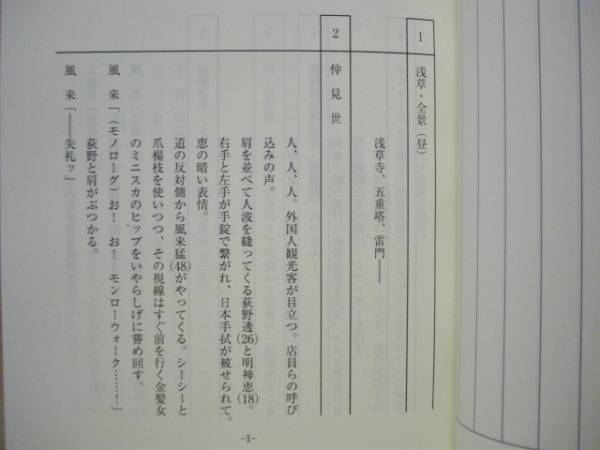 1 浅草・全景（昼）
浅草寺、五重塔、雷門――
2 仲見世
人、人、人。外国人観光客が目立つ。店員らの呼び
込みの声。
肩を並べて人波を縫ってくる荻野透(26)と明神恵(18)。
右手と左手が手錠で繋がれ、日本手拭が被せられて。
恵の暗い表情。
道の反対側から風来猛(48)がやってくる。シーシーと
爪楊枝を使いつつ、その視線はすぐ前を行く金髪女
のミニスカのヒップをいやらしげに嘗め回す。
風来「（モノローグ）お！　お！　モンローウォーク……！」
荻野と肩がぶつかる。
風来「――失礼ッ」
-1-